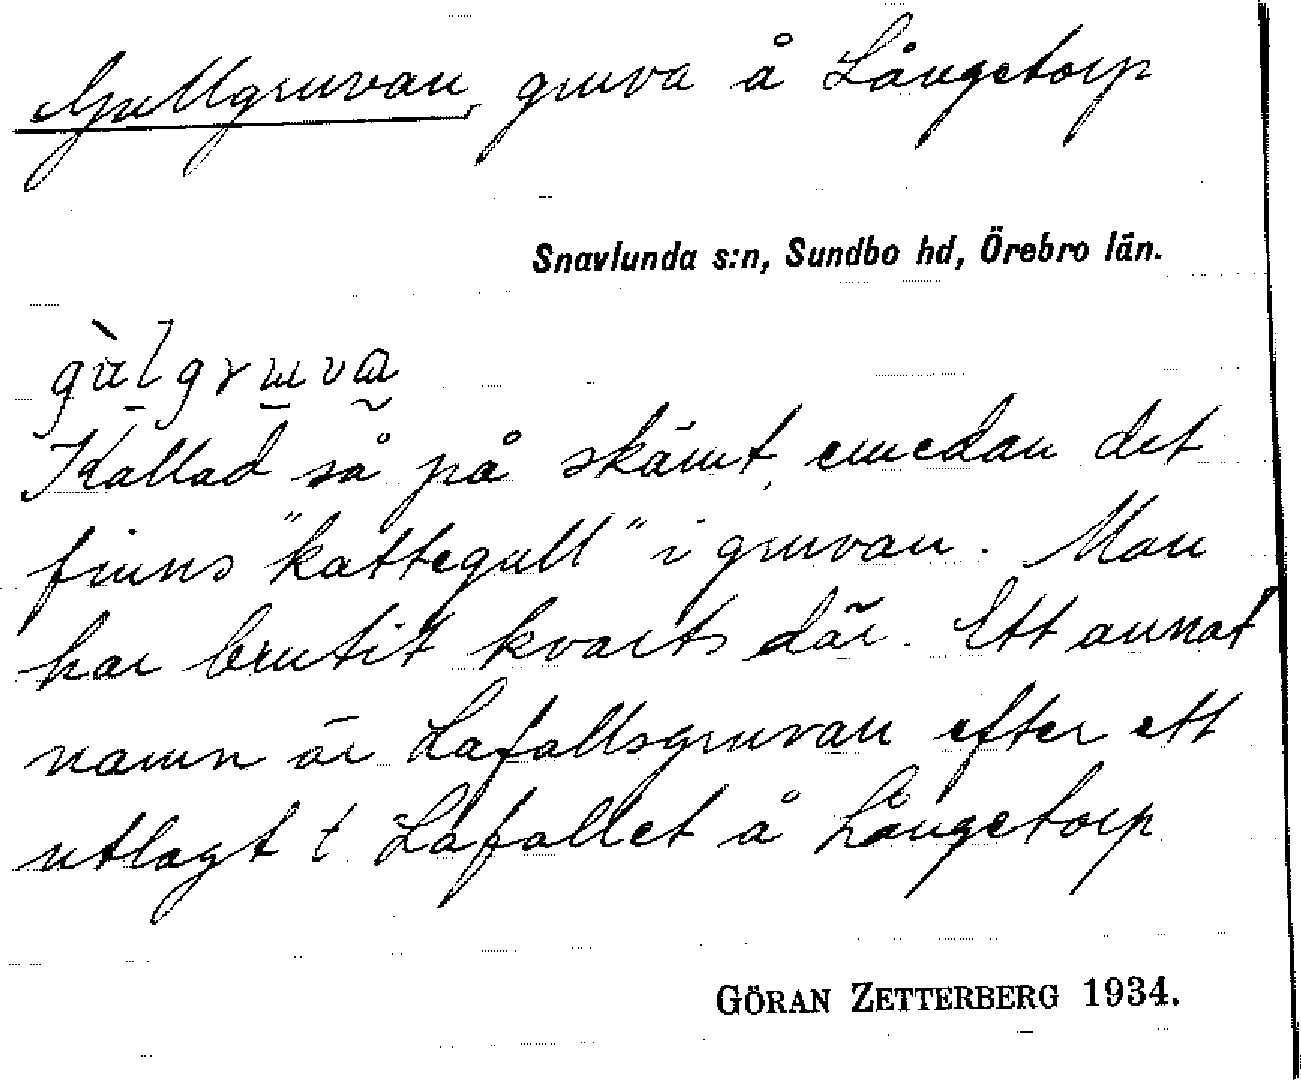 Gullgruvan, gruva å Långetorp
Snavlunda s:n, Sundbo hd, Örebro län.
Kallad så på skämt, emedan det
finns "kattegull" i gruvan. Man
har brutit kvarts där. Ett annat
namn är Lafallsgruvan efter ett
utlagt t Lafallet å Långetorp
GÖRAN ZETTERBERG 1934.